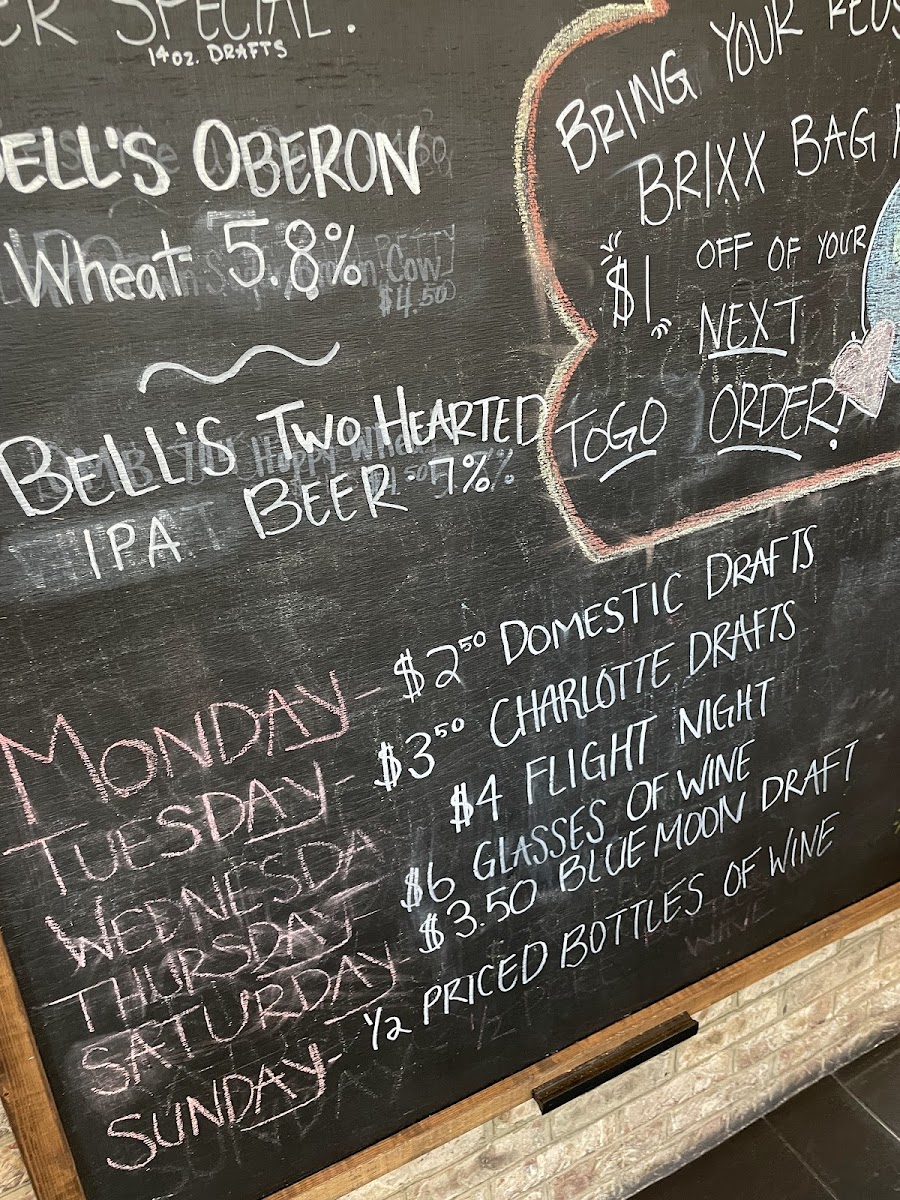 SPECIAL.
14 OZ. DRAFTS
BELL'S OBERON
Wheat 5.8%
$4.50
BELL'S TWO HEARTED
IPA BEER 7%
BRING YOUR
BRIXX BAG
$1 OFF OF YOUR
NEXT
TOGO ORDER!
MONDAY - $2.50 DOMESTIC DRAFTS
TUESDAY - $3.50 CHARLOTTE DRAFTS
WEDNESDA $4 FLIGHT NIGHT
THURSDAY - $6 GLASSES OF WINE
SATURDAY - $3.50 BLUE MOON DRAFT
SUNDAY - 1/2 PRICED BOTTLES OF WINE